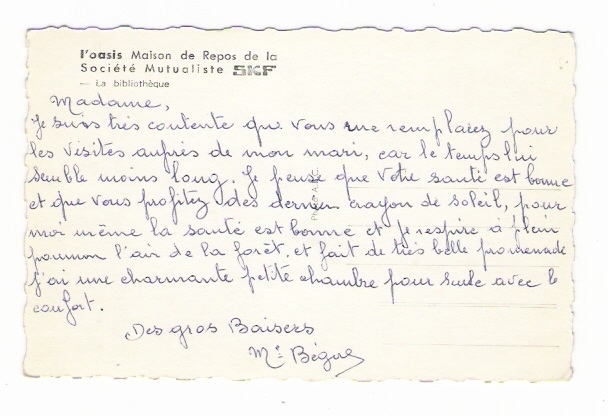 l'oasis Maison de Repos de la
Société Mutualiste SKF
— La bibliothèque
Madame,
Je suis très contente que vous me remplacez pour
les visites auprès de mon mari, car le temps lui
semble moins long. Je pense que votre santé est bonne
et que vous profitez des dernier crayon de soleil, pour
moi même la santé est bonne et je respire à plein
poumon l'air de la forêt, et fait de très belle promenade
j'ai une charmante petite chambre pour seule avec le
confort.
Des gros Baisers
Me Bégue